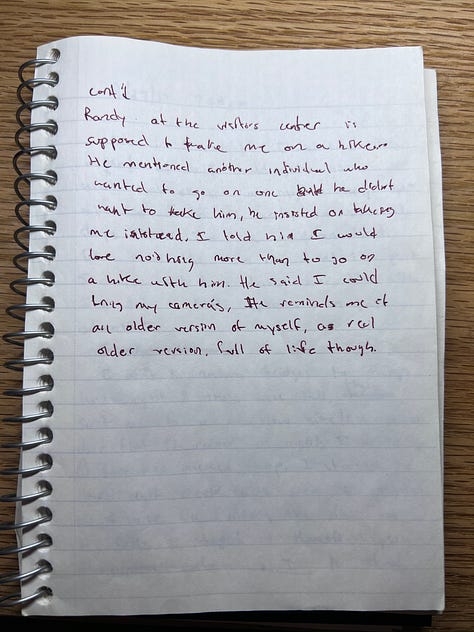 cont'd
Randy at the visitors center is
supposed to take me on a hike.
He mentioned another individual who
wanted to go on one but he didnt
want to take him, he insisted on taking
me instead. I told him I would
love nothing more than to go on
a hike with him. He said I could
bring my cameras, He reminds me of
an older version of myself, a real
older version, full of life though.